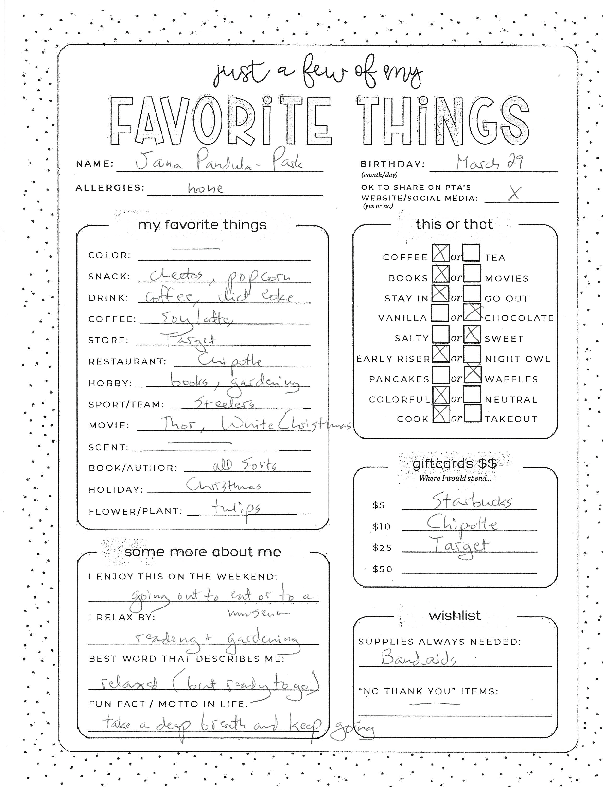 just a few of my
FAVORITE THINGS
NAME: Jana Pardula-Park
ALLERGIES: none
BIRTHDAY: March 29
(month/day)
OK TO SHARE ON PTA'S
WEBSITE/SOCIAL MEDIA: X
(yes or no)
my favorite things
COLOR:
SNACK: cheetos, popcorn
DRINK: coffee, diet coke
COFFEE: soy latte
STORE: Target
RESTAURANT: Chipotle
HOBBY: books, gardening
SPORT/TEAM: Steelers
MOVIE: Thor, White Christmas
SCENT:
BOOK/AUTHOR: all sorts
HOLIDAY: Christmas
FLOWER/PLANT: tulips
this or that
COFFEE X or TEA
BOOKS X or MOVIES
STAY IN X or GO OUT
VANILLA or X CHOCOLATE
SALTY or X SWEET
EARLY RISER X or NIGHT OWL
PANCAKES or X WAFFLES
COLORFUL X or NEUTRAL
COOK X or TAKEOUT
giftcards $$
Where I would spend...
$5 Starbucks
$10 Chipotle
$25 Target
$50
some more about me
I ENJOY THIS ON THE WEEKEND:
going out to eat or to a
museum
I RELAX BY:
reading + gardening
BEST WORD THAT DESCRIBES ME:
relaxed (but ready to go)
FUN FACT / MOTTO IN LIFE:
take a deep breath and keep going
wishlist
SUPPLIES ALWAYS NEEDED:
Bandaids
"NO THANK YOU" ITEMS: